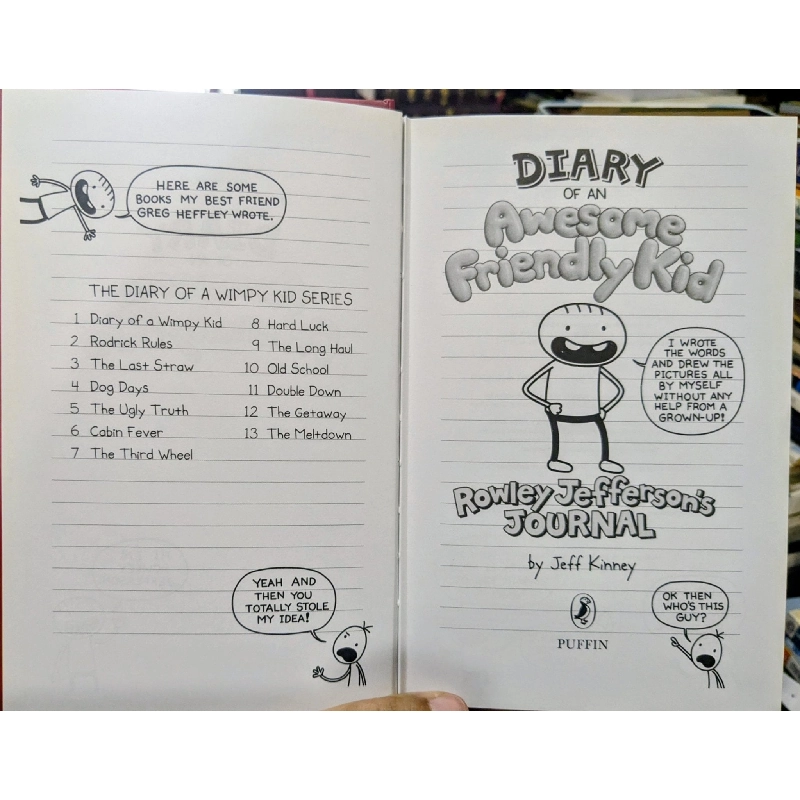 HERE ARE SOME
BOOKS MY BEST FRIEND
GREG HEFFLEY WROTE.
THE DIARY OF A WIMPY KID SERIES
1 Diary of a Wimpy Kid
2 Rodrick Rules
3 The Last Straw
4 Dog Days
5 The Ugly Truth
6 Cabin Fever
7 The Third Wheel
8 Hard Luck
9 The Long Haul
10 Old School
11 Double Down
12 The Getaway
13 The Meltdown
YEAH AND
THEN YOU
TOTALLY STOLE
MY IDEA!
DIARY
OF AN
Awesome
Friendly Kid
I WROTE
THE WORDS
AND DREW THE
PICTURES ALL
BY MYSELF
WITHOUT ANY
HELP FROM A
GROWN-UP!
Rowley Jefferson's
JOURNAL
by Jeff Kinney
PUFFIN
OK THEN
WHO'S THIS
GUY?